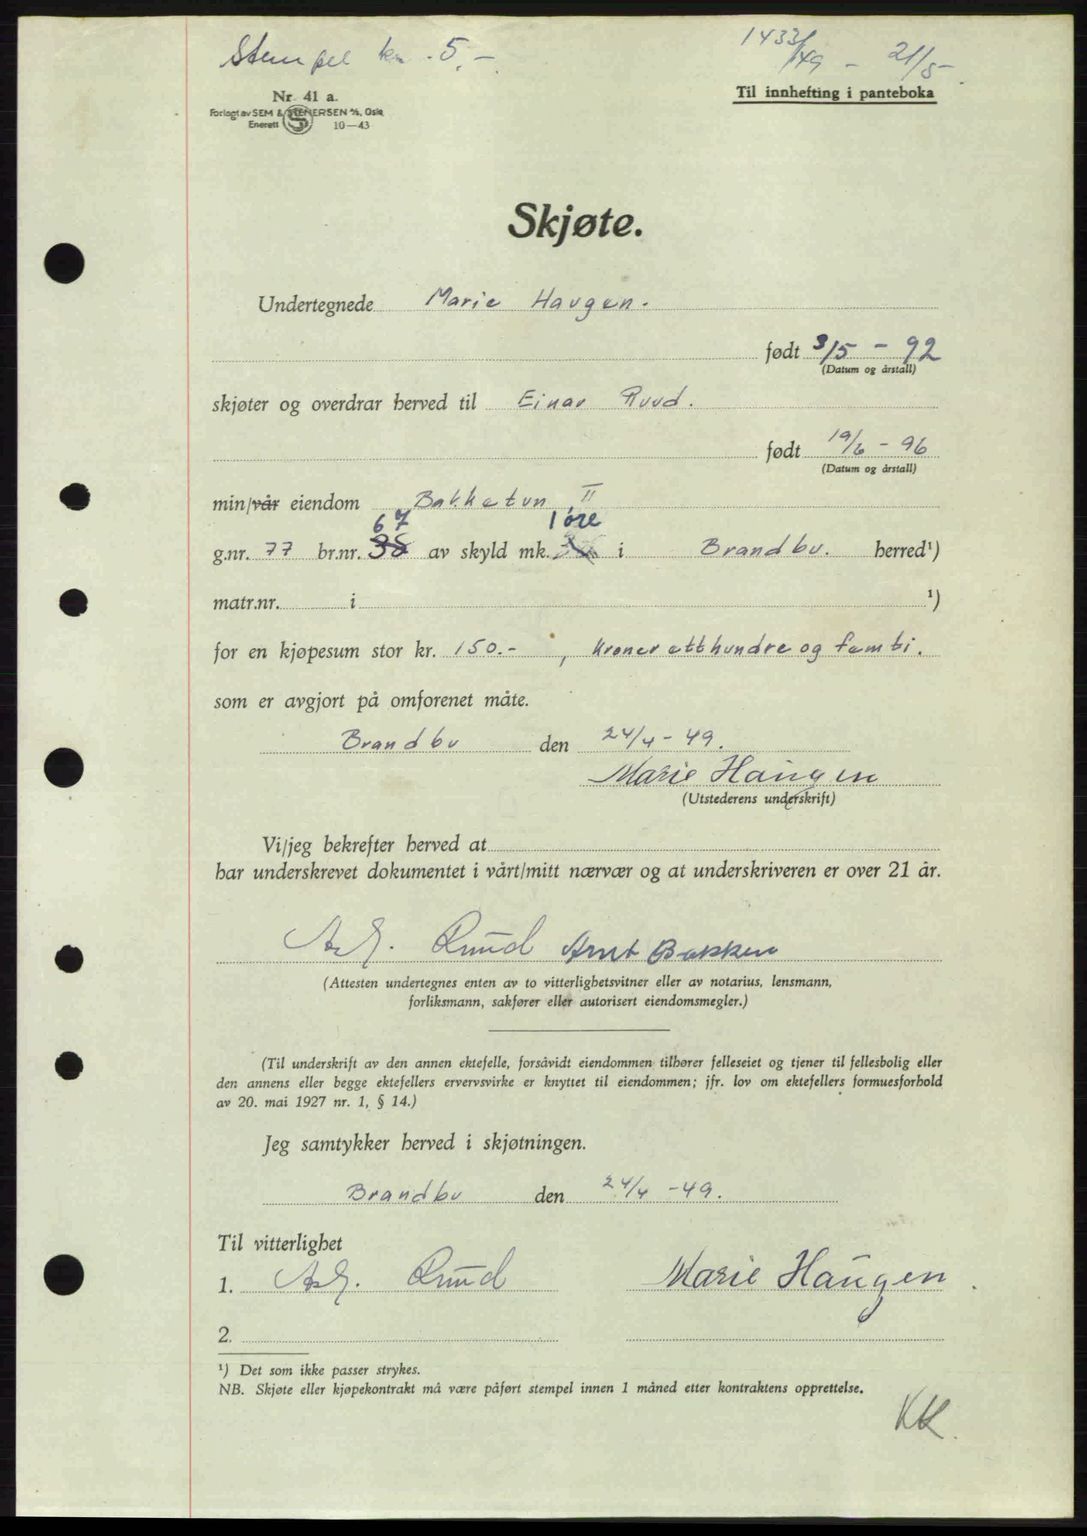 Stempel kr. 5,-
1433/49 - 21/5
Nr. 41 a.
Forlagt av SEM & STENERSEN A/S, Oslo
Enerett 10-43
Til innhefting i panteboka
Skjøte.
Undertegnede Marie Haugen.
født 3/5 - 92
(Datum og årstall)
skjøter og overdrar herved til Einar Ruud.
født 19/6 - 96
(Datum og årstall)
min/vår eiendom Bakketun II
67 1 øre
g.nr. 77 br.nr. 38 av skyld mk. i Brandbu. herred¹)
matr.nr. i ¹)
for en kjøpesum stor kr. 150.- , kroner etthundre og femti.
som er avgjort på omforenet måte.
Brandbu den 24/4 - 49.
Marie Haugen
(Utstederens underskrift)
Vi/jeg bekrefter herved at
har underskrevet dokumentet i vårt/mitt nærvær og at underskriveren er over 21 år.
Ruud Arnt Bakken
(Attesten undertegnes enten av to vitterlighetsvitner eller av notarius, lensmann,
forliksmann, sakfører eller autorisert eiendomsmegler.)
(Til underskrift av den annen ektefelle, forsåvidt eiendommen tilhører felleseiet og tjener til fellesbolig eller
den annens eller begge ektefellers ervervsvirke er knyttet til eiendommen; jfr. lov om ektefellers formuesforhold
av 20. mai 1927 nr. 1, § 14.)
Jeg samtykker herved i skjøtningen.
Brandbu den 24/4 - 49.
Til vitterlighet
1. Ruud Marie Haugen
2.
¹) Det som ikke passer strykes.
NB. Skjøte eller kjøpekontrakt må være påført stempel innen 1 måned etter kontraktens opprettelse.
KK.